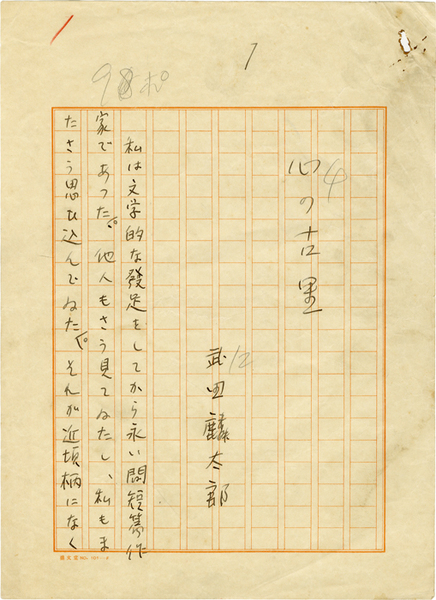 1
98ポ
心の古里
4
武田麟太郎
12
私は文学的な發足をしてから永い間短篇作
家であつた。他人もさう見てゐたし、私もま
たさう思ひ込んでゐた。それが近頃柄になく